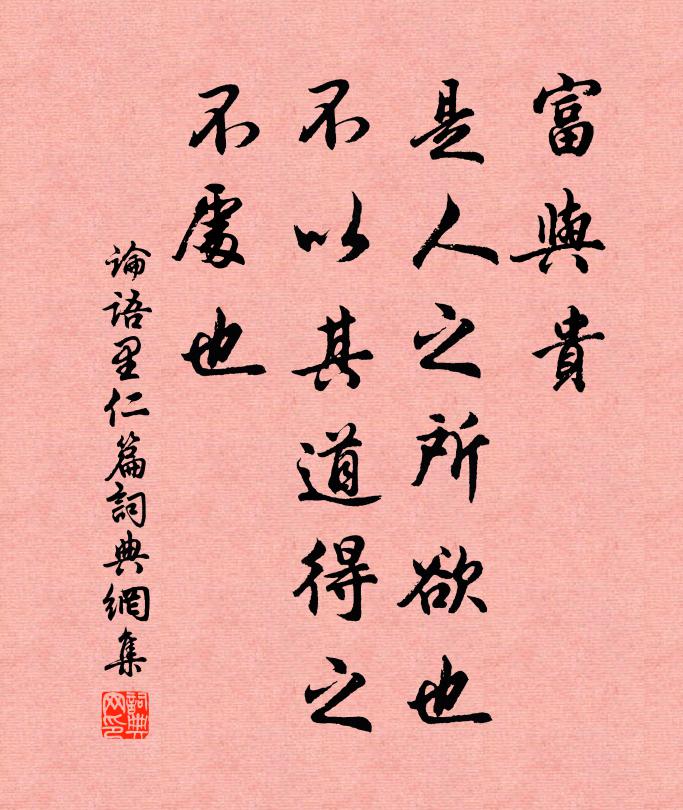 富與貴
是人之所欲也
不以其道得之
不處也
論語里仁篇詞典網集
詞典网印